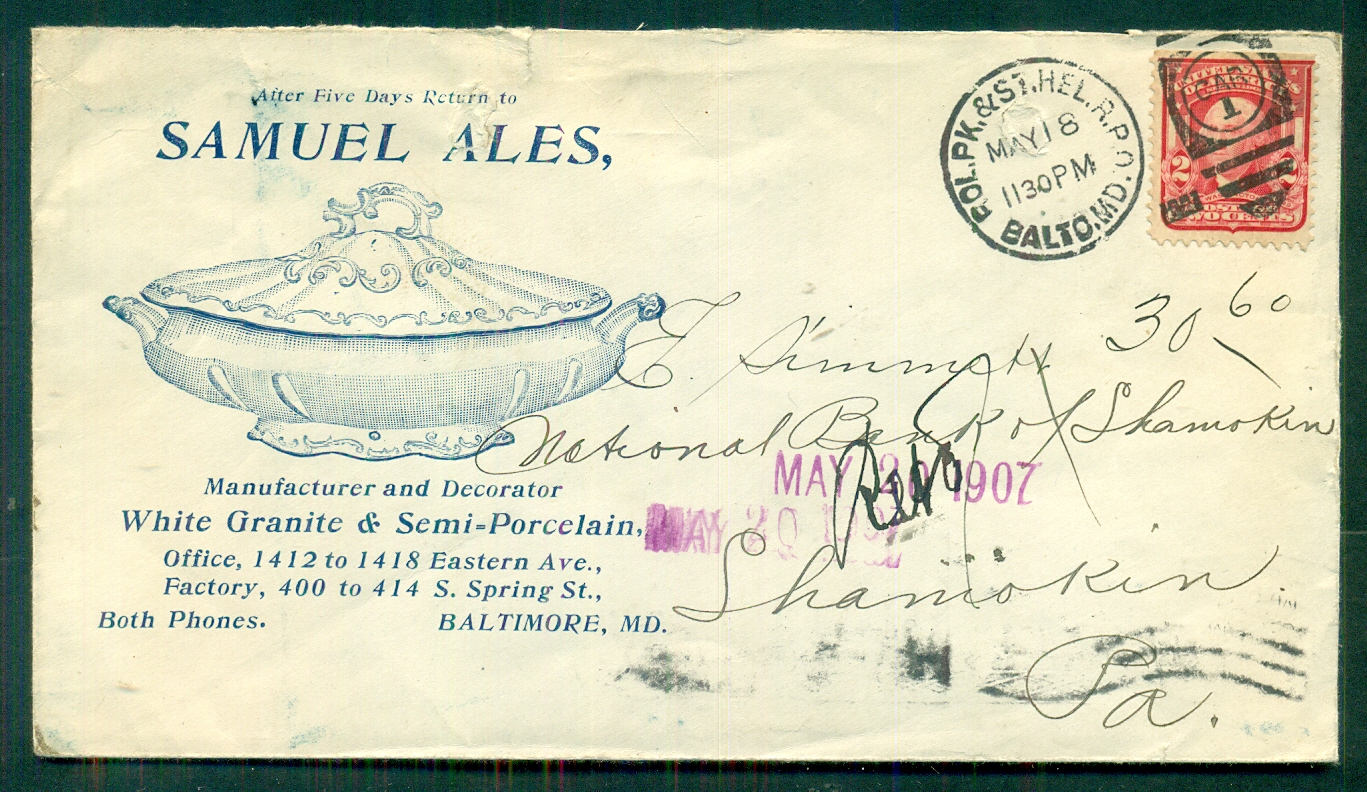 After Five Days Return to
SAMUEL ALES,
Manufacturer and Decorator
White Granite & Semi-Porcelain,
Office, 1412 to 1418 Eastern Ave.,
Factory, 400 to 414 S. Spring St.,
Both Phones. BALTIMORE, MD.
ROL.PK.&ST.HEL.R.P.O.
MAY 18
1130PM
BALTO,MD.
1
2 2
TWO CENTS
30 60
National Bank of Shamokin
MAY 20 1907
MAY 20 1907
Shamokin
Pa.